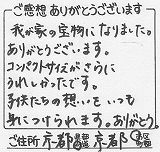 ご感想ありがとうございます
我が家の宝物になりました。
ありがとうございます。
コンパクトサイズがさらに
うれしかったです。
子供たちの想いをいつも
身につけられます。ありがとう。
ご住所 京都 都道府県 京都 市区